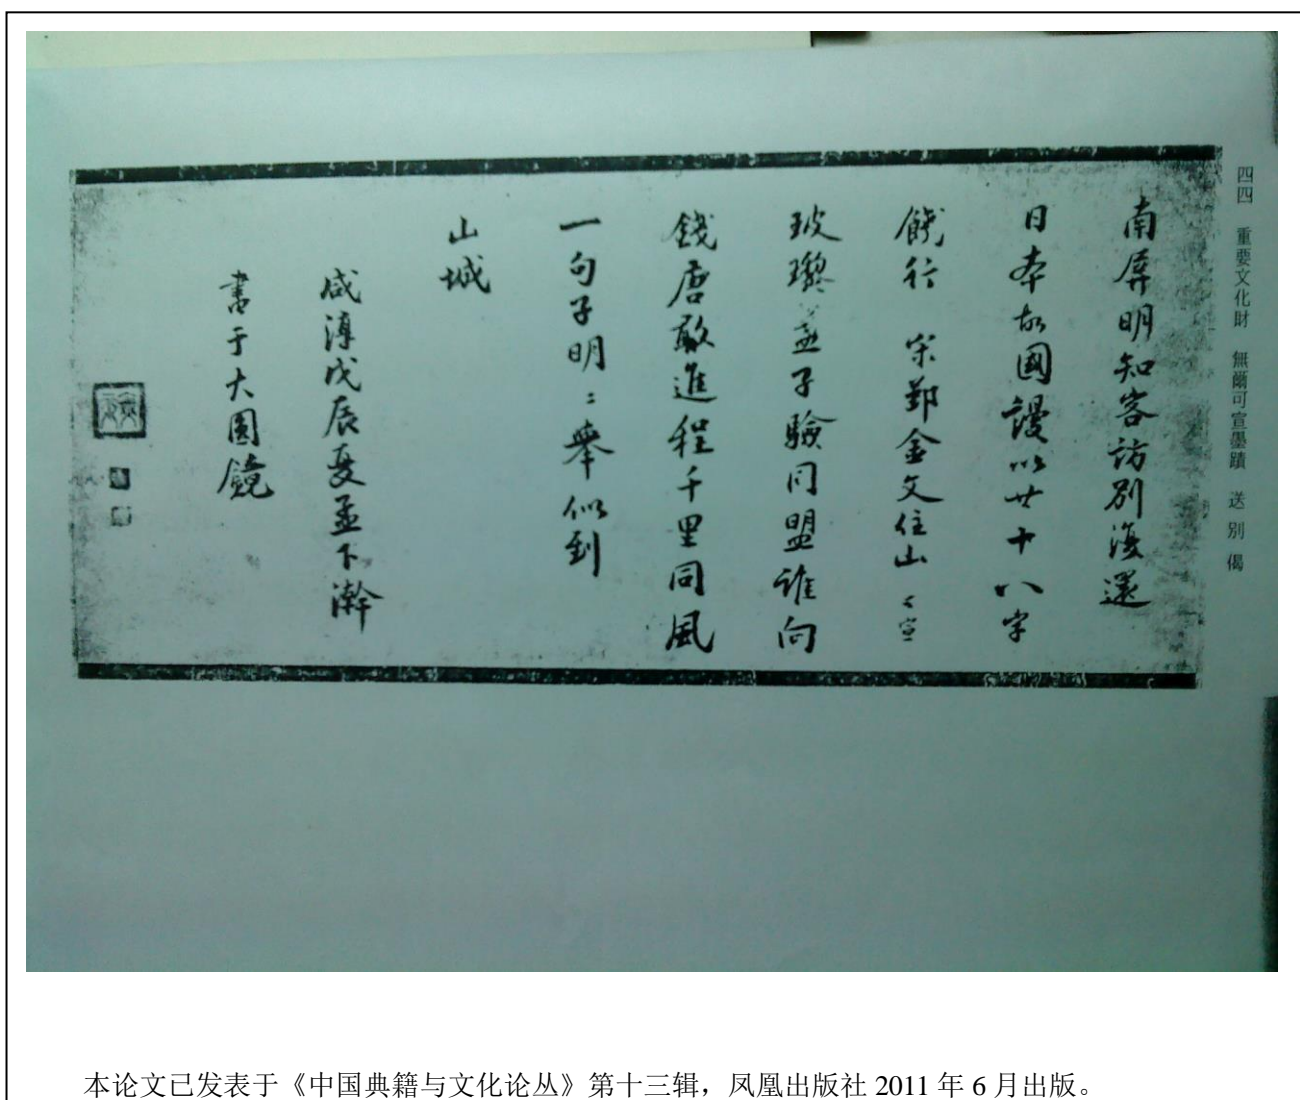 四四　重要文化財　無爾可宣墨蹟　送別偈
南屏明知客訪別復還
日本故國謾以廿十八字
餞行　宋鄞金文住山〻宣
玻瓈盞子驗同盟誰向
錢唐敢進程千里同風
一句子明〻舉似到
山城
咸淳戊辰夏孟下澣
書于大圓鏡
本论文已发表于《中国典籍与文化论丛》第十三辑，凤凰出版社 2011 年 6 月出版。